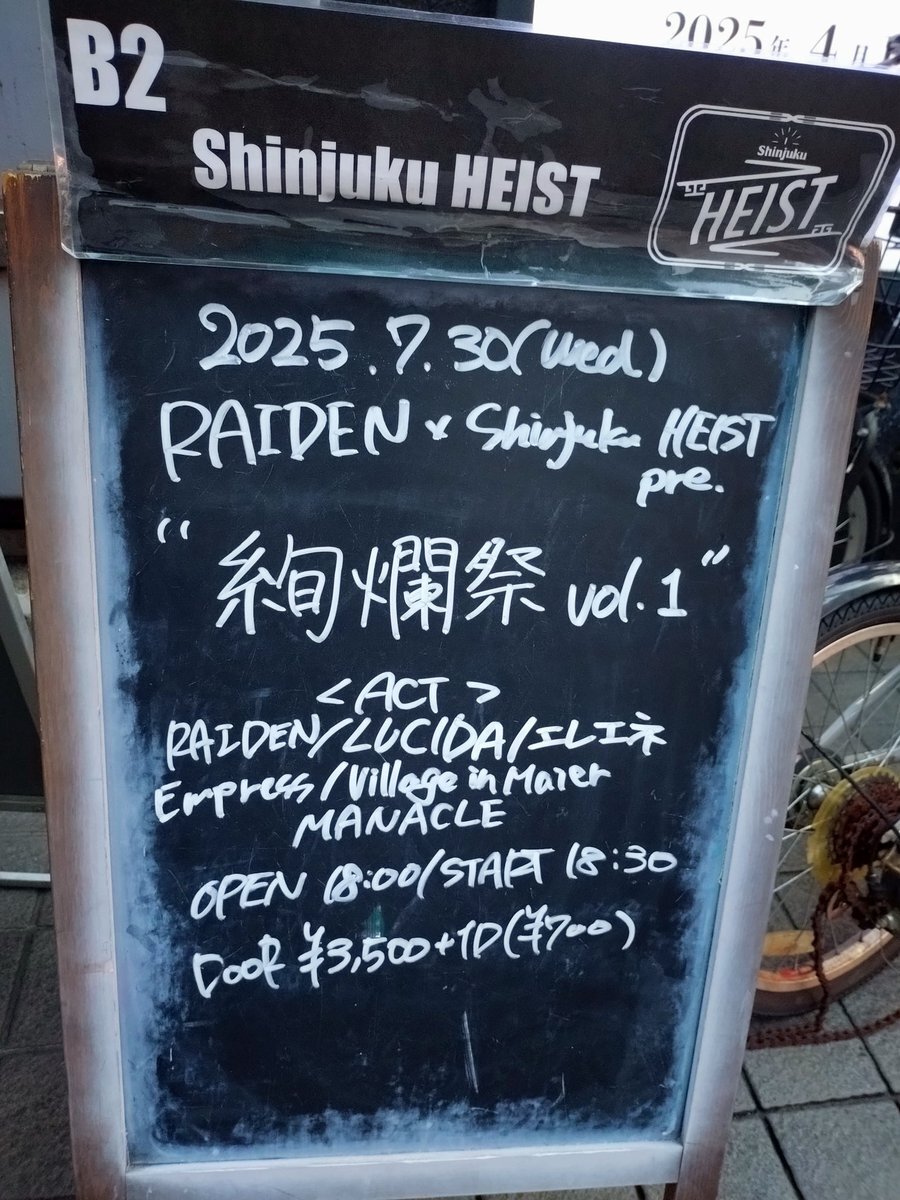 2025年 4月
B2
Shinjuku HEIST
Shinjuku
HEIST
2025.7.30(Wed)
RAIDEN × Shinjuku HEIST
pre.
“絢爛祭 vol.1”
<ACT>
RAIDEN/LUCIDA/エレエネ
Empress/Village in Maier
MANACLE
OPEN 18:00/START 18:30
Door ¥3,500+1D(¥700)